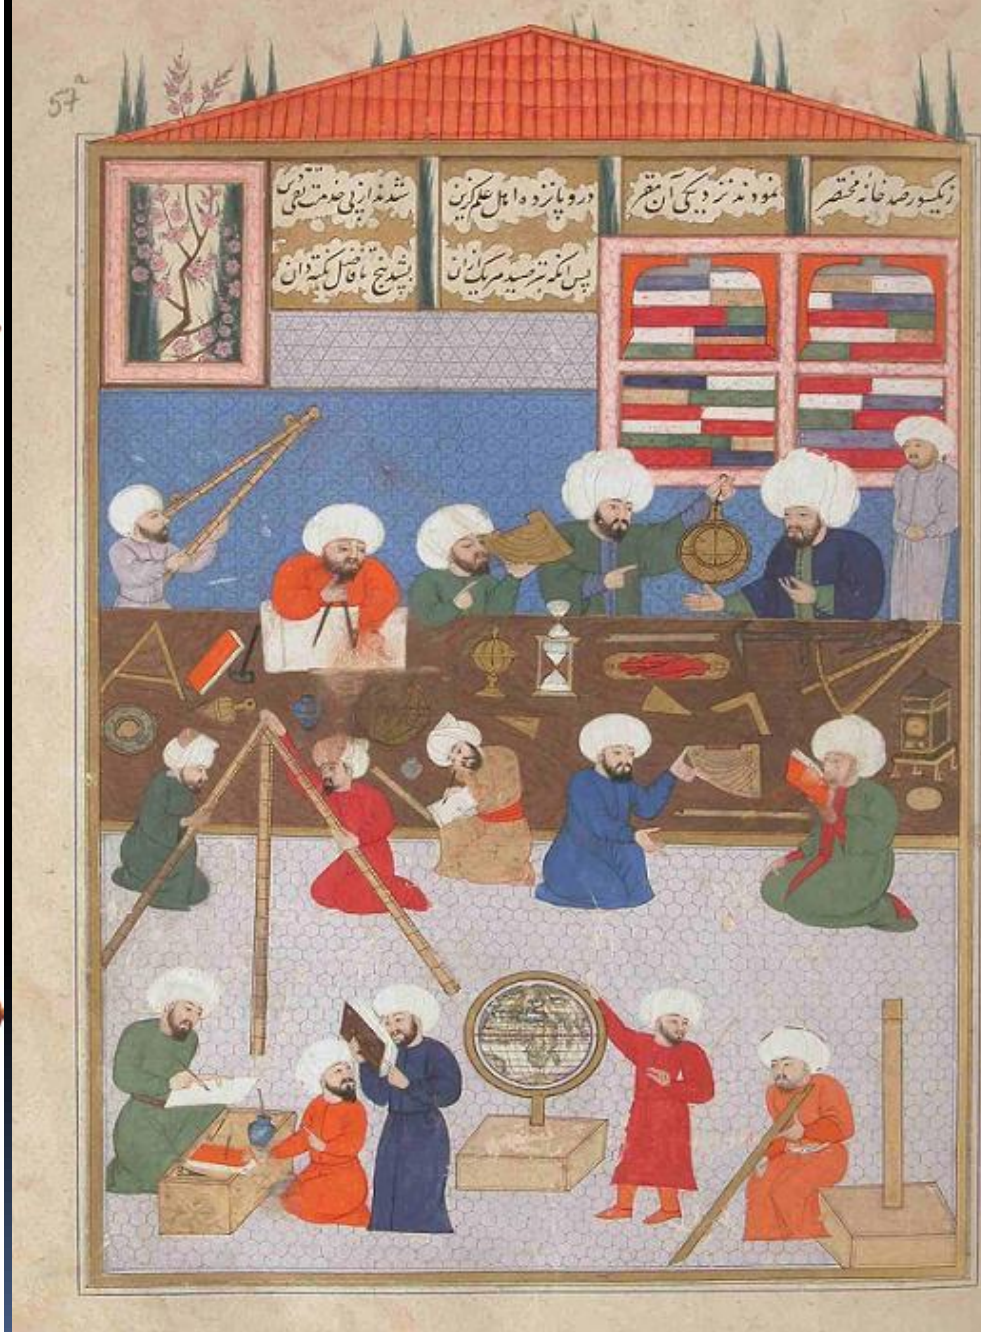 57a
زیکسو رصد خانهٔ مختصر نمودند نزدیکی آن مقر درو پانزده اهل علم گزین شدند از پی خدمت تقی دین
پس انکه بترصید هر یک ازان بشد پنج با فاضل نکته دان